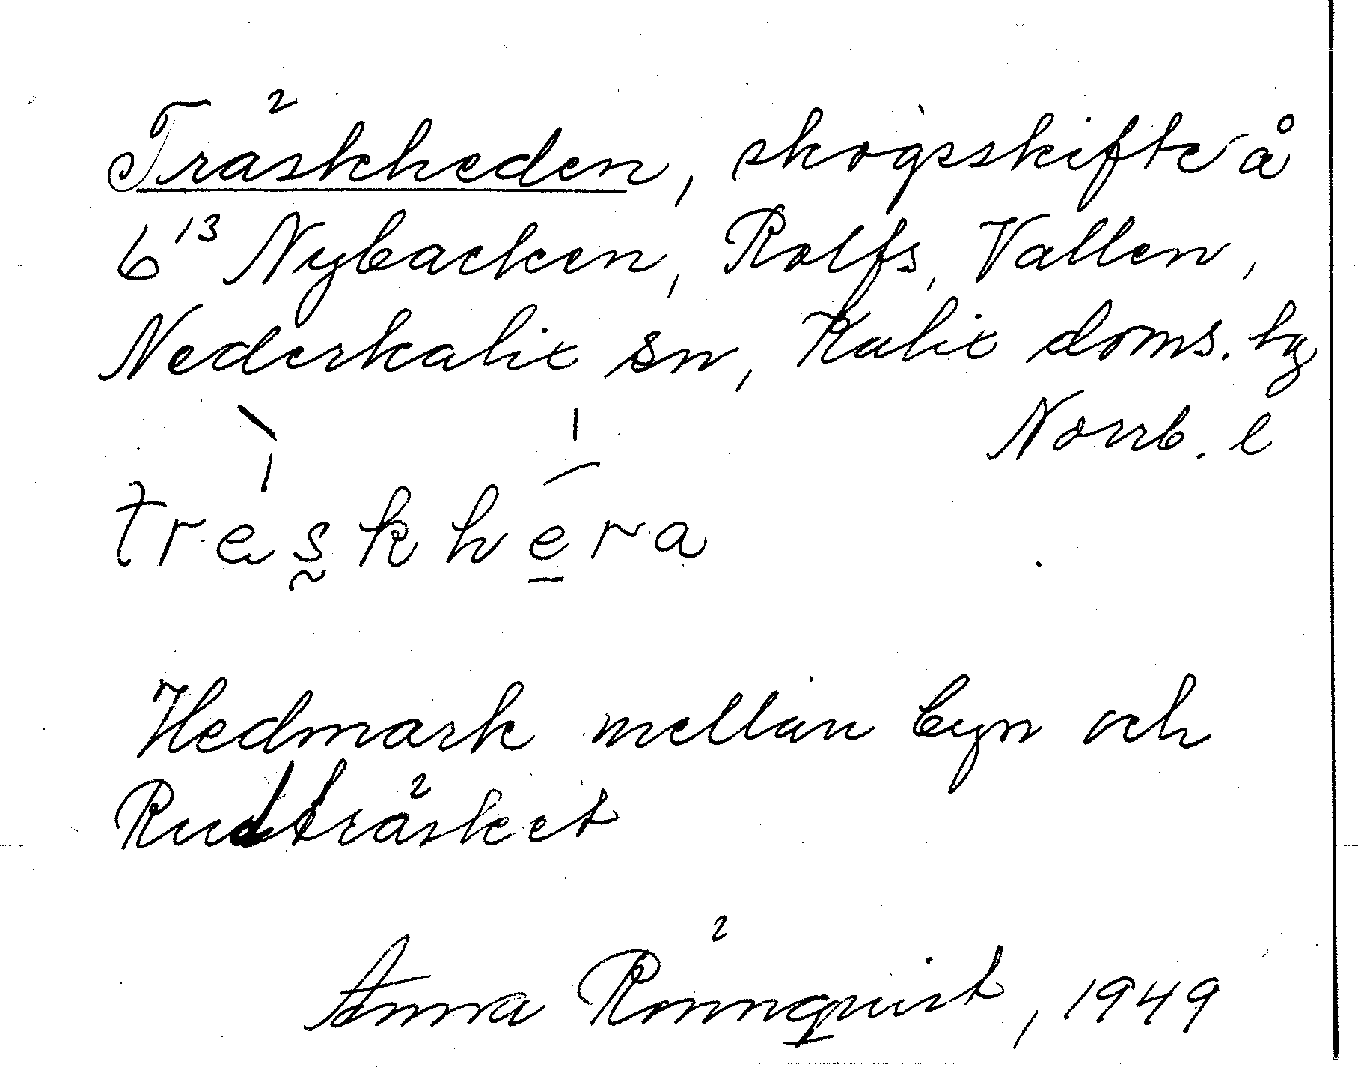 Träskheden, skogsskifte å
6¹³ Nybacken, Rolfs, Vallen,
Nederkalix sn, Kalix doms. tg
Norrb. l
treskhera
Hedmark mellan byn och
Rudträsket
Anna Rönnquist, 1949